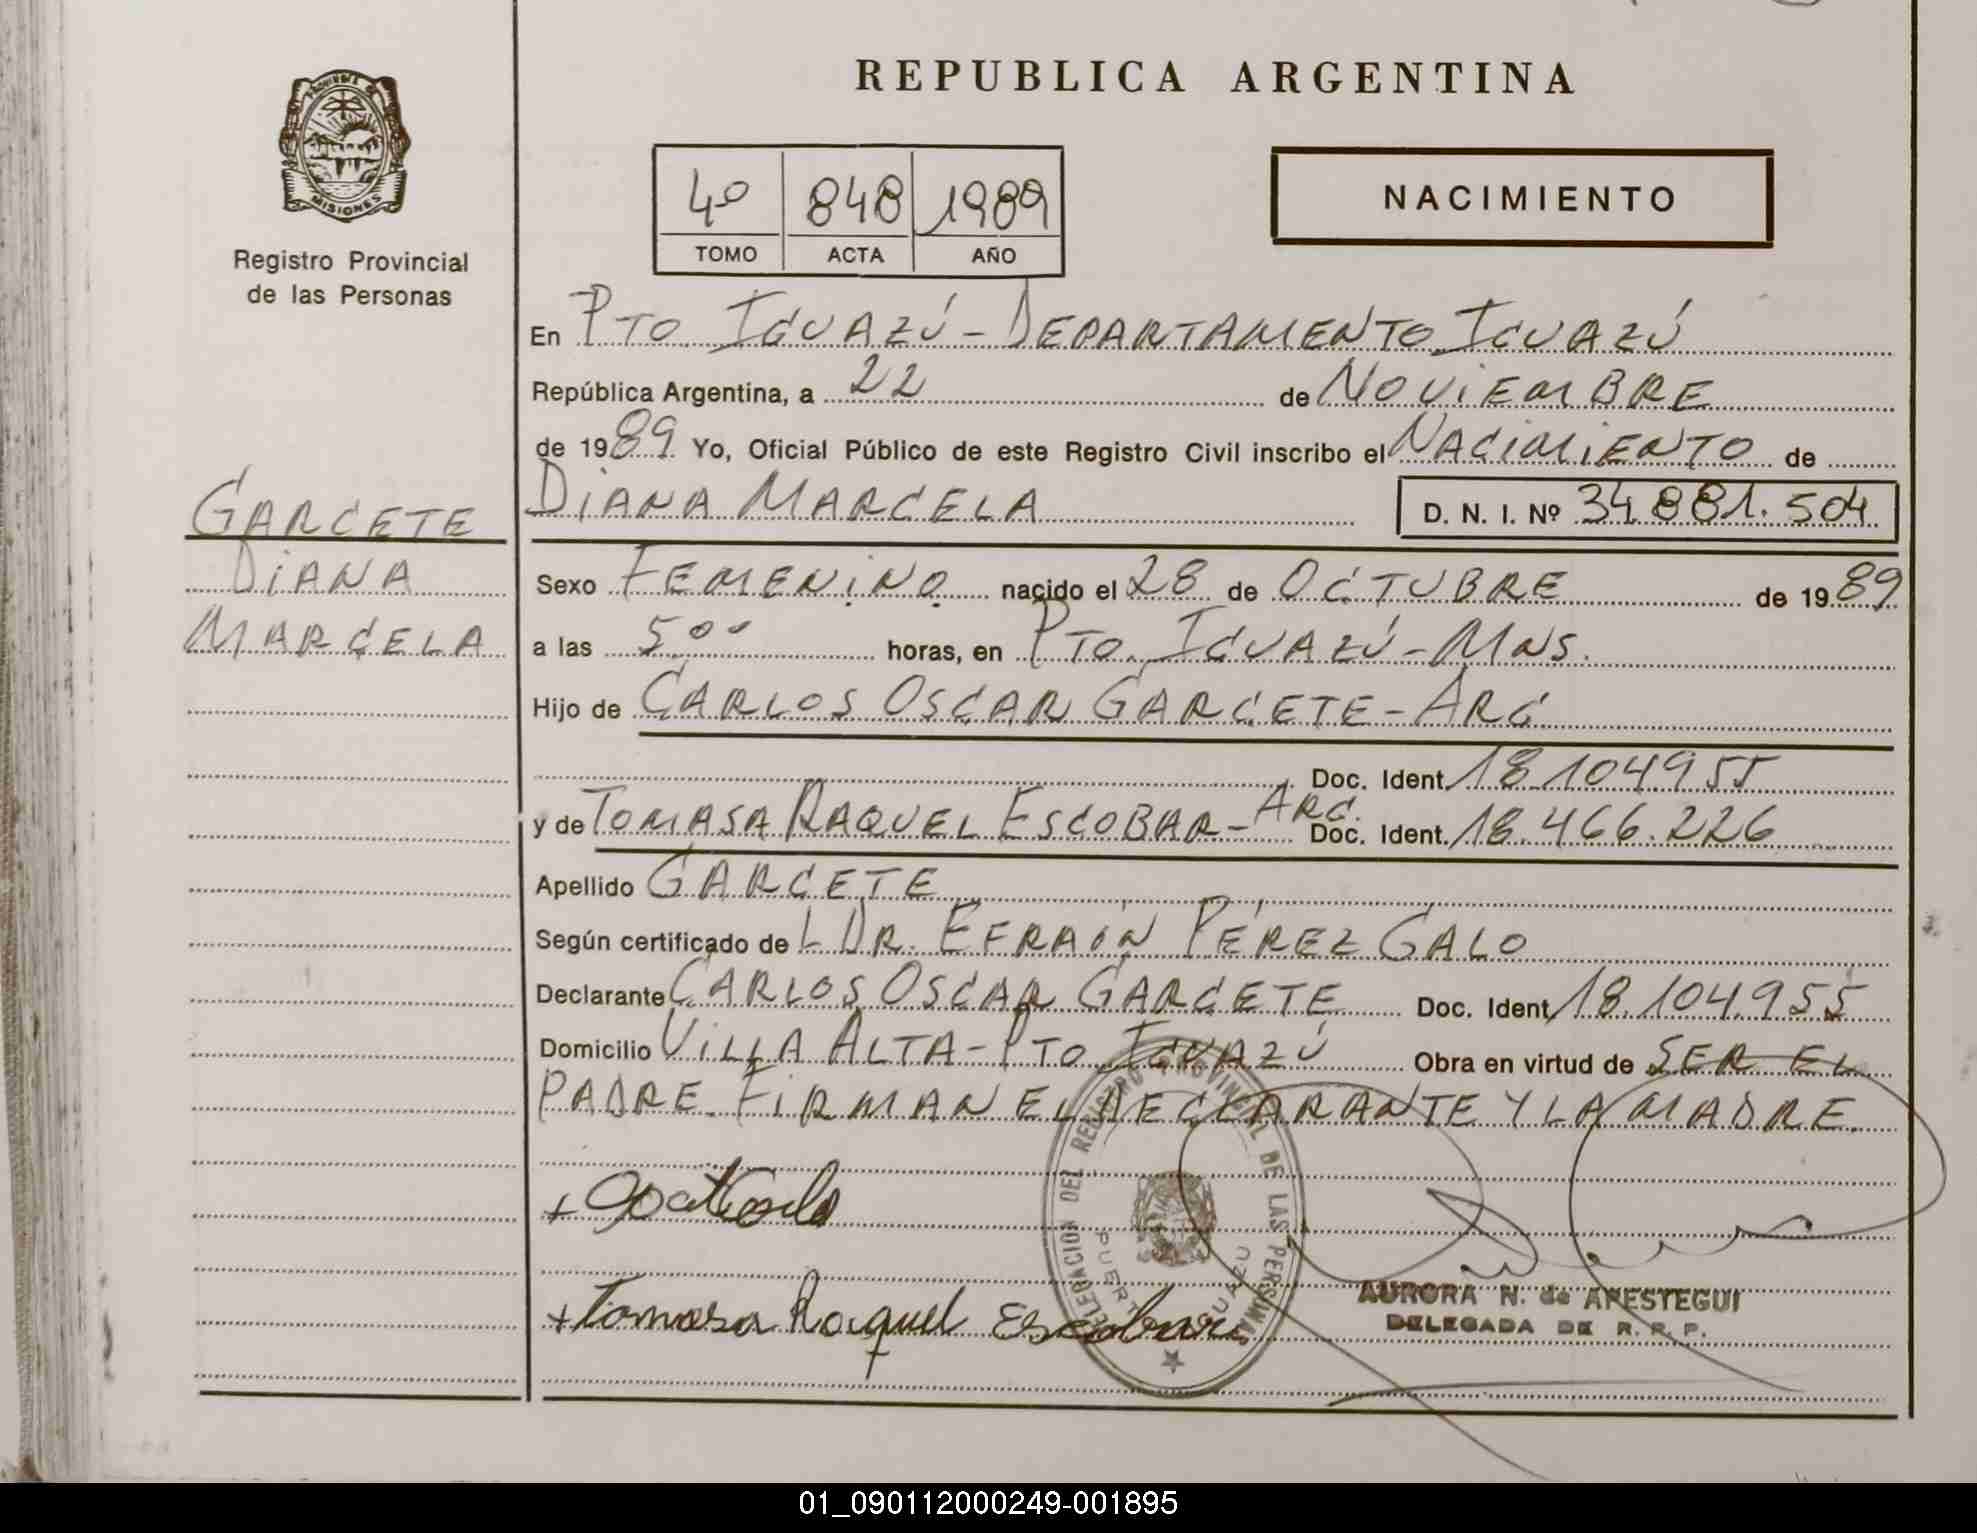 REPUBLICA ARGENTINA
PROVINCIA DE
MISIONES
Registro Provincial
de las Personas
4º 848 1989
TOMO ACTA AÑO
NACIMIENTO
En PTO. IGUAZÚ - DEPARTAMENTO IGUAZÚ
República Argentina, a 22 de NOVIEMBRE
de 1989 Yo, Oficial Público de este Registro Civil inscribo el NACIMIENTO de
GARCETE
DIANA
MARCELA
DIANA MARCELA D. N. I. Nº 34.881.504
Sexo FEMENINO nacido el 28 de OCTUBRE de 1989
a las 5⁰⁰ horas, en PTO. IGUAZÚ - MNS.
Hijo de CARLOS OSCAR GARCETE - ARG.
Doc. Ident. 18.104955
y de TOMASA RAQUEL ESCOBAR - ARG. Doc. Ident. 18.466.226
Apellido GARCETE
Según certificado de L DR. EFRAÍN PÉREZ GALO
Declarante CARLOS OSCAR GARCETE Doc. Ident. 18.104.955
Domicilio VILLA ALTA - PTO IGUAZÚ Obra en virtud de SER EL
PADRE. FIRMAN EL DECLARANTE Y LA MADRE.
DELEGACION DEL REGISTRO PROVINCIAL DE LAS PERSONAS
PUERTO IGUAZU
+ Tomasa Raquel Escobar
AURORA N. de ARESTEGUI
DELEGADA DE R. R. P.
01_090112000249-001895